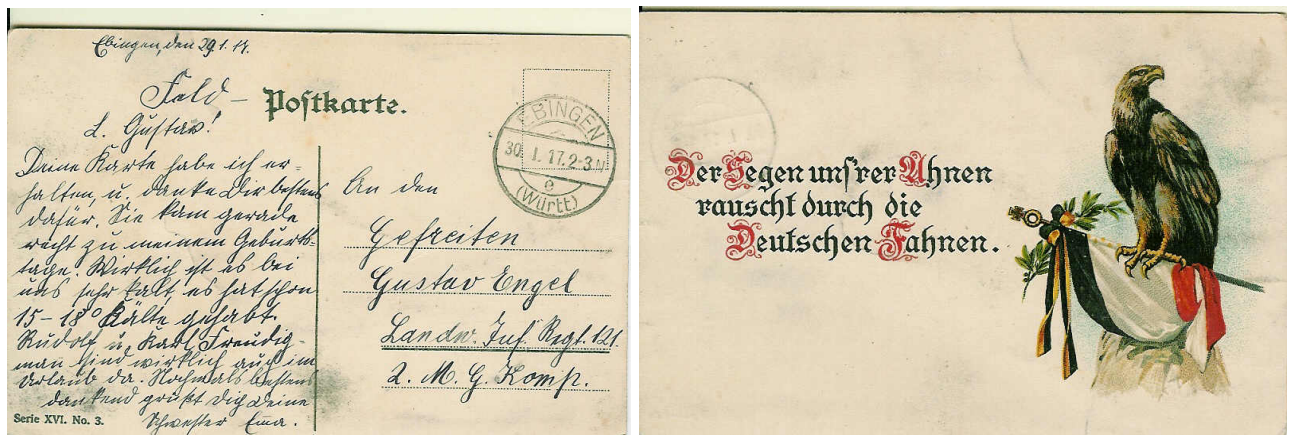 Ebingen, den 29.1.17.
Feld-
Postkarte.
EBINGEN
30. 1. 17. 2-3 N
e
(Württ)
L. Gustav!
Deine Karte habe ich er-
halten, u. danke Dir bestens
dafür. Sie kam gerade
recht zu meinem Geburts-
tage. Wirklich ist es bei
uns sehr kalt, es hat schon
15-18° Kälte gehabt.
Rudolf u. Karl Freudig-
man sind wirklich auch im
Urlaub da. Nochmals bestens
dankend grüßt Dich Deine
Schwester Emma.
Serie XVI. No. 3.
An den
Gefreiten
Gustav Engel
Landw. Inf. Regt. 121.
2. M. G. Komp.
Der Segen uns'rer Ahnen
rauscht durch die
Deutschen Fahnen.